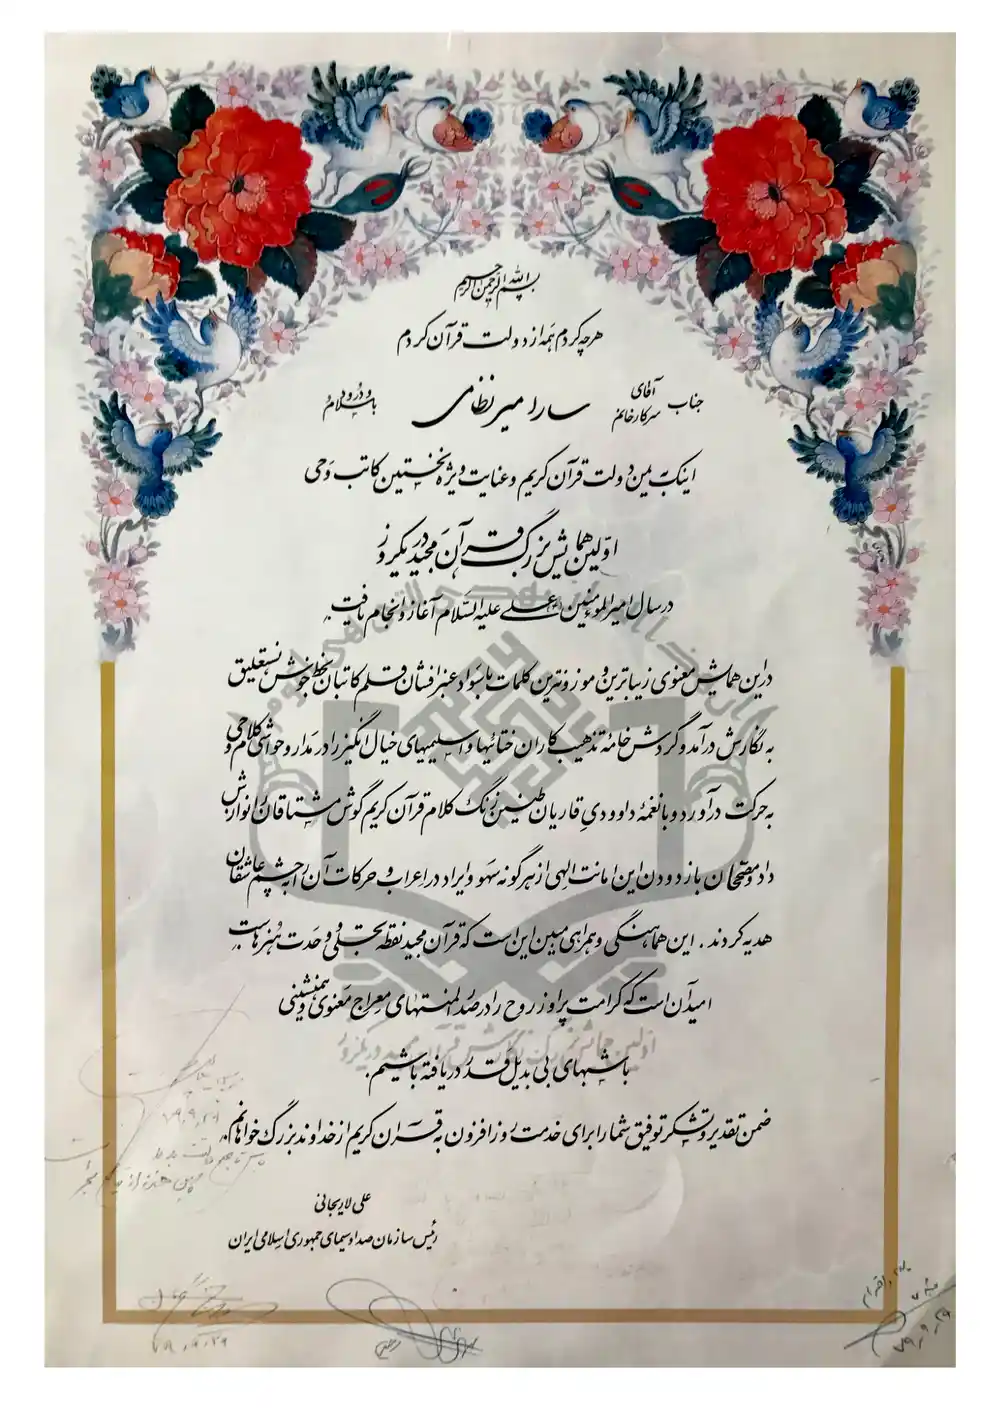 بسم الله الرحمن الرحیم
هر چه کردم همه از دولت قرآن کردم
جناب آقای سرکار خانم سارا امیر نظامی با درود و سلام
اینک به یمن دولت قرآن کریم و عنایت ویژه نخستین کاتب وحی
اولین همایش بزرگ قرآن مجید در یکروز
در سال امیرالمومنین علی علیه السلام آغاز و انجام یافت.
در این همایش معنوی زیباترین و موزونترین کلمات با سواد عنبر افشان و قلم کاتبان بخط خوش نستعلیق
به نگارش درآمد و گردش خامه تذهیب کاران ختائیها و اسلیمیهای خیال انگیز را در مدار و حواشی کلام وحی
به حرکت درآورد و با نغمه داوودی قاریان طنین زنگ کلام قرآن کریم گوش مشتاقان را نوازش
داد و مصححان باز دودن این امانت الهی از هر گونه سهو و ایراد در اعراب و حرکات آن را به چشم عاشقان
هدیه کردند. این هماهنگی و همراهی مبین این است که قرآن مجید نقطه تجلی و وحدت هنرهاست
امید آن است که کرامت پرواز روح را در صدر المنتهای معراج معنوی و همنشینی
با شبهای بی بدیل قدر دریافته باشیم.
ضمن تقدیر و تشکر توفیق شما را برای خدمت روزافزون به قرآن کریم از خداوند بزرگ خواهانم.
علی لاریجانی
رئیس سازمان صدا و سیمای جمهوری اسلامی ایران